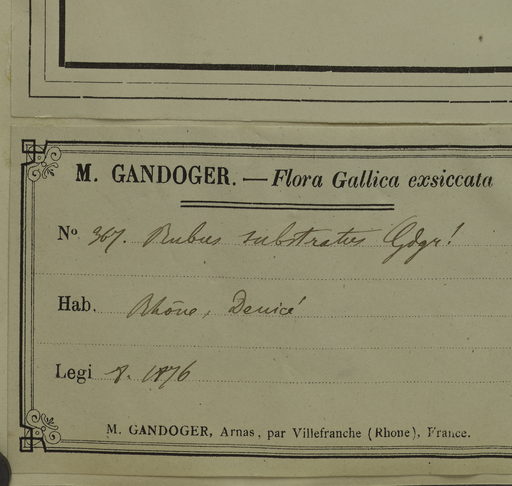 M. GANDOGER. — Flora Gallica exsiccata
No 367. Rubus substratus Gdgr!
Hab. Rhône, Denicé
Legi 8. 1876
M. GANDOGER, Arnas, par Villefranche (Rhone), France.